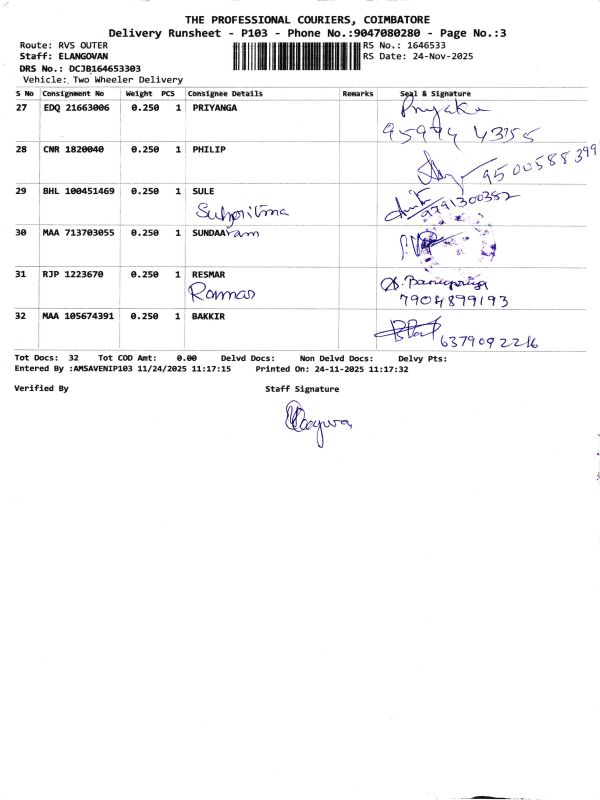 THE PROFESSIONAL COURIERS, COIMBATORE
Delivery Runsheet - P103 - Phone No.:9047080280 - Page No.:3
Route: RVS OUTER
RS No.: 1646533
Staff: ELANGOVAN
RS Date: 24-Nov-2025
DRS No.: DCJB164653303
Vehicle: Two Wheeler Delivery
S No Consignment No Weight PCS Consignee Details Remarks Seal & Signature
27 EDQ 21663006 0.250 1 PRIYANGA
95974 43355
28 CNR 1820040 0.250 1 PHILIP
9500588399
29 BHL 100451469 0.250 1 SULE
9791300352
30 MAA 713703055 0.250 1 SUNDAAram
31 RJP 1223670 0.250 1 RESMAR
7904899193
32 MAA 105674391 0.250 1 BAKKIR
6379092216
Tot Docs: 32 Tot COD Amt: 0.00 Delvd Docs: Non Delvd Docs: Delvy Pts:
Entered By :AMSAVENIP103 11/24/2025 11:17:15 Printed On: 24-11-2025 11:17:32
Verified By Staff Signature